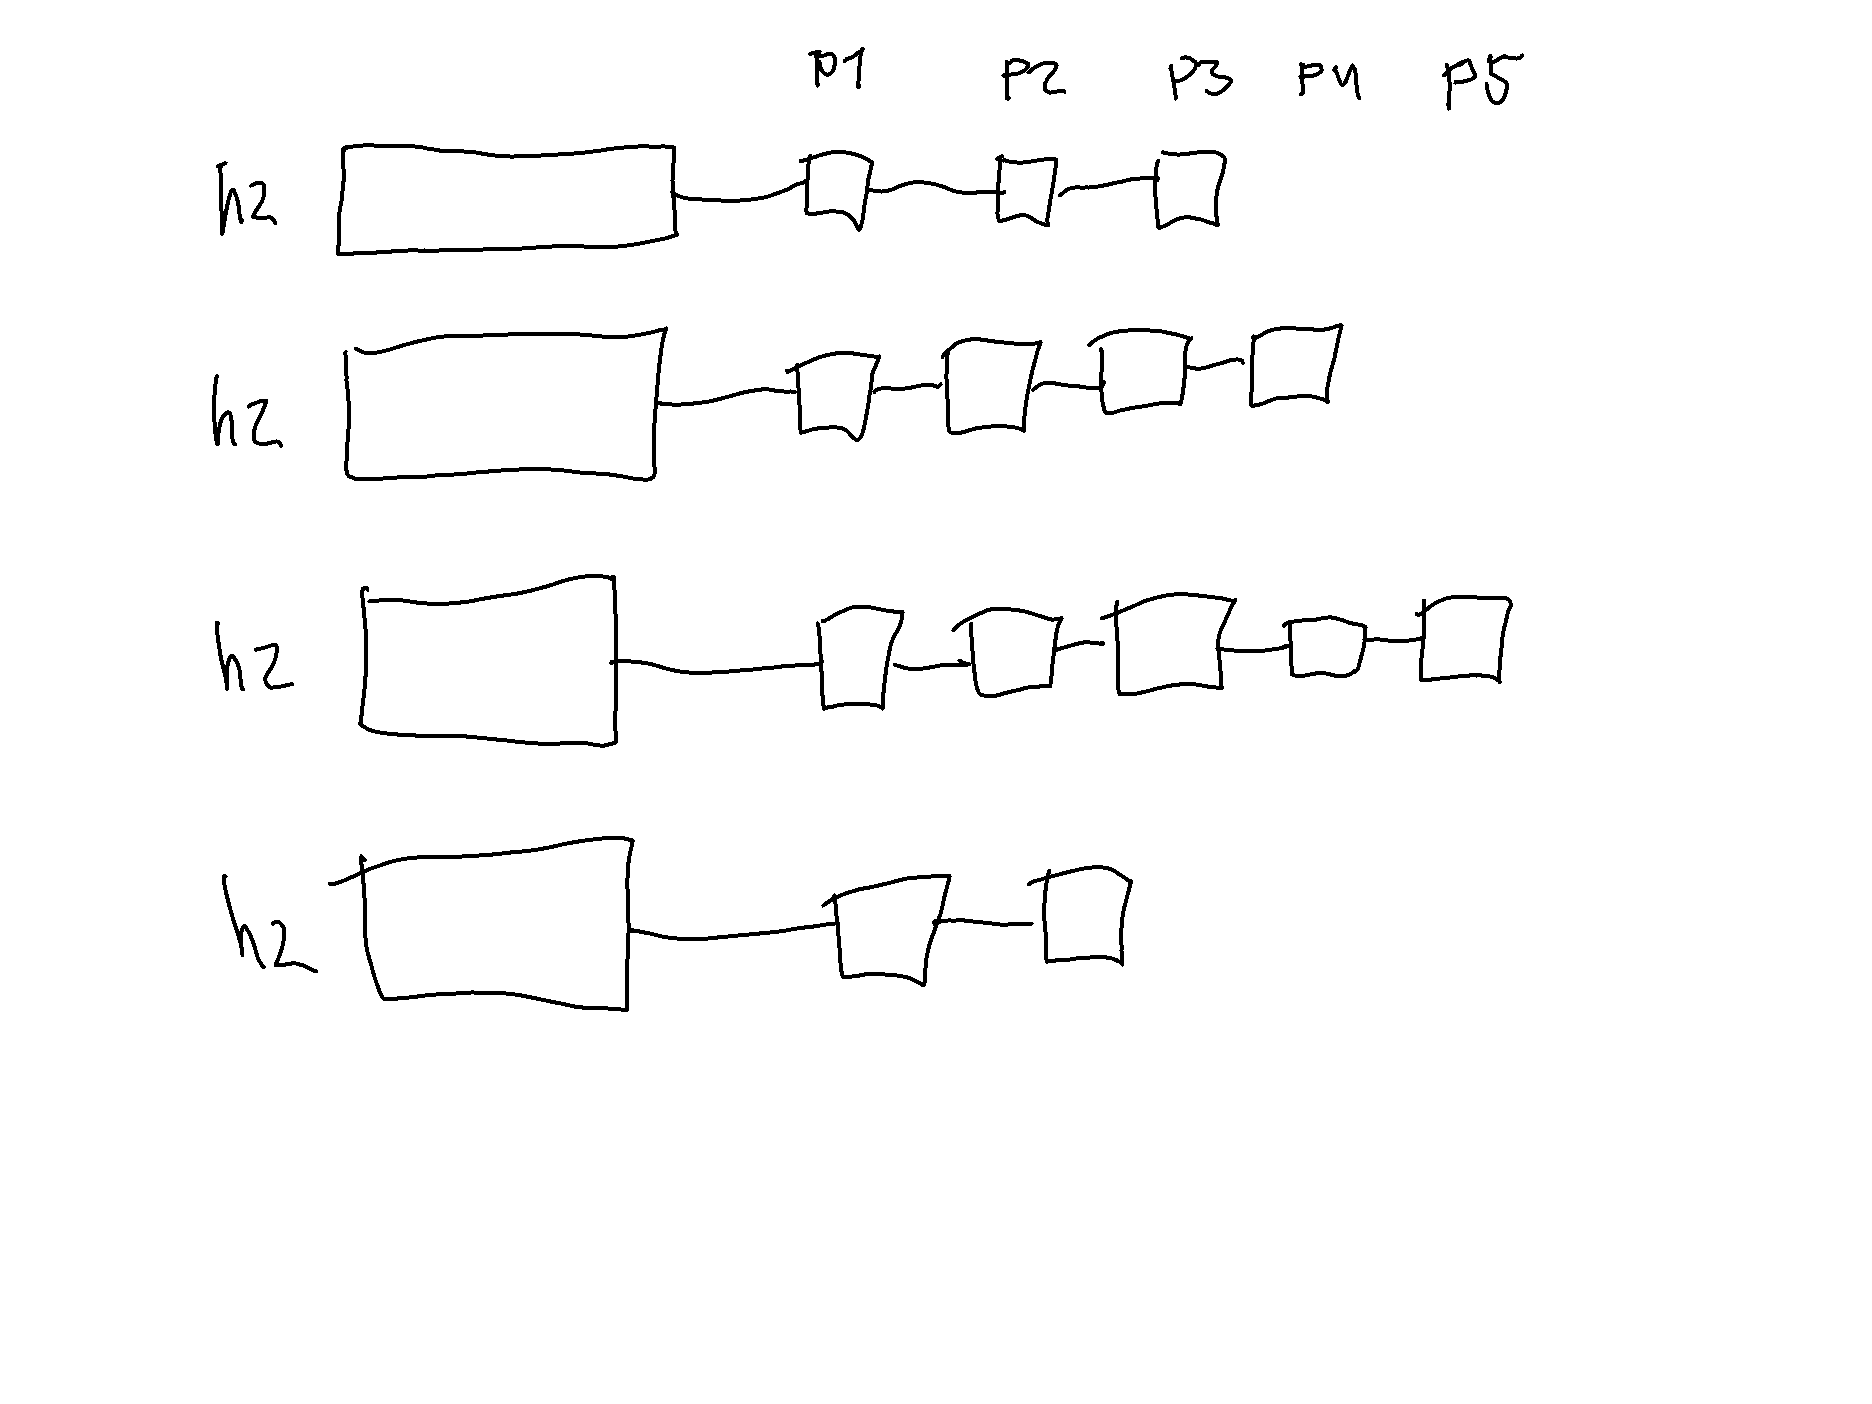 p1 p2 p3 p4 p5
h2
h2
h2
h2